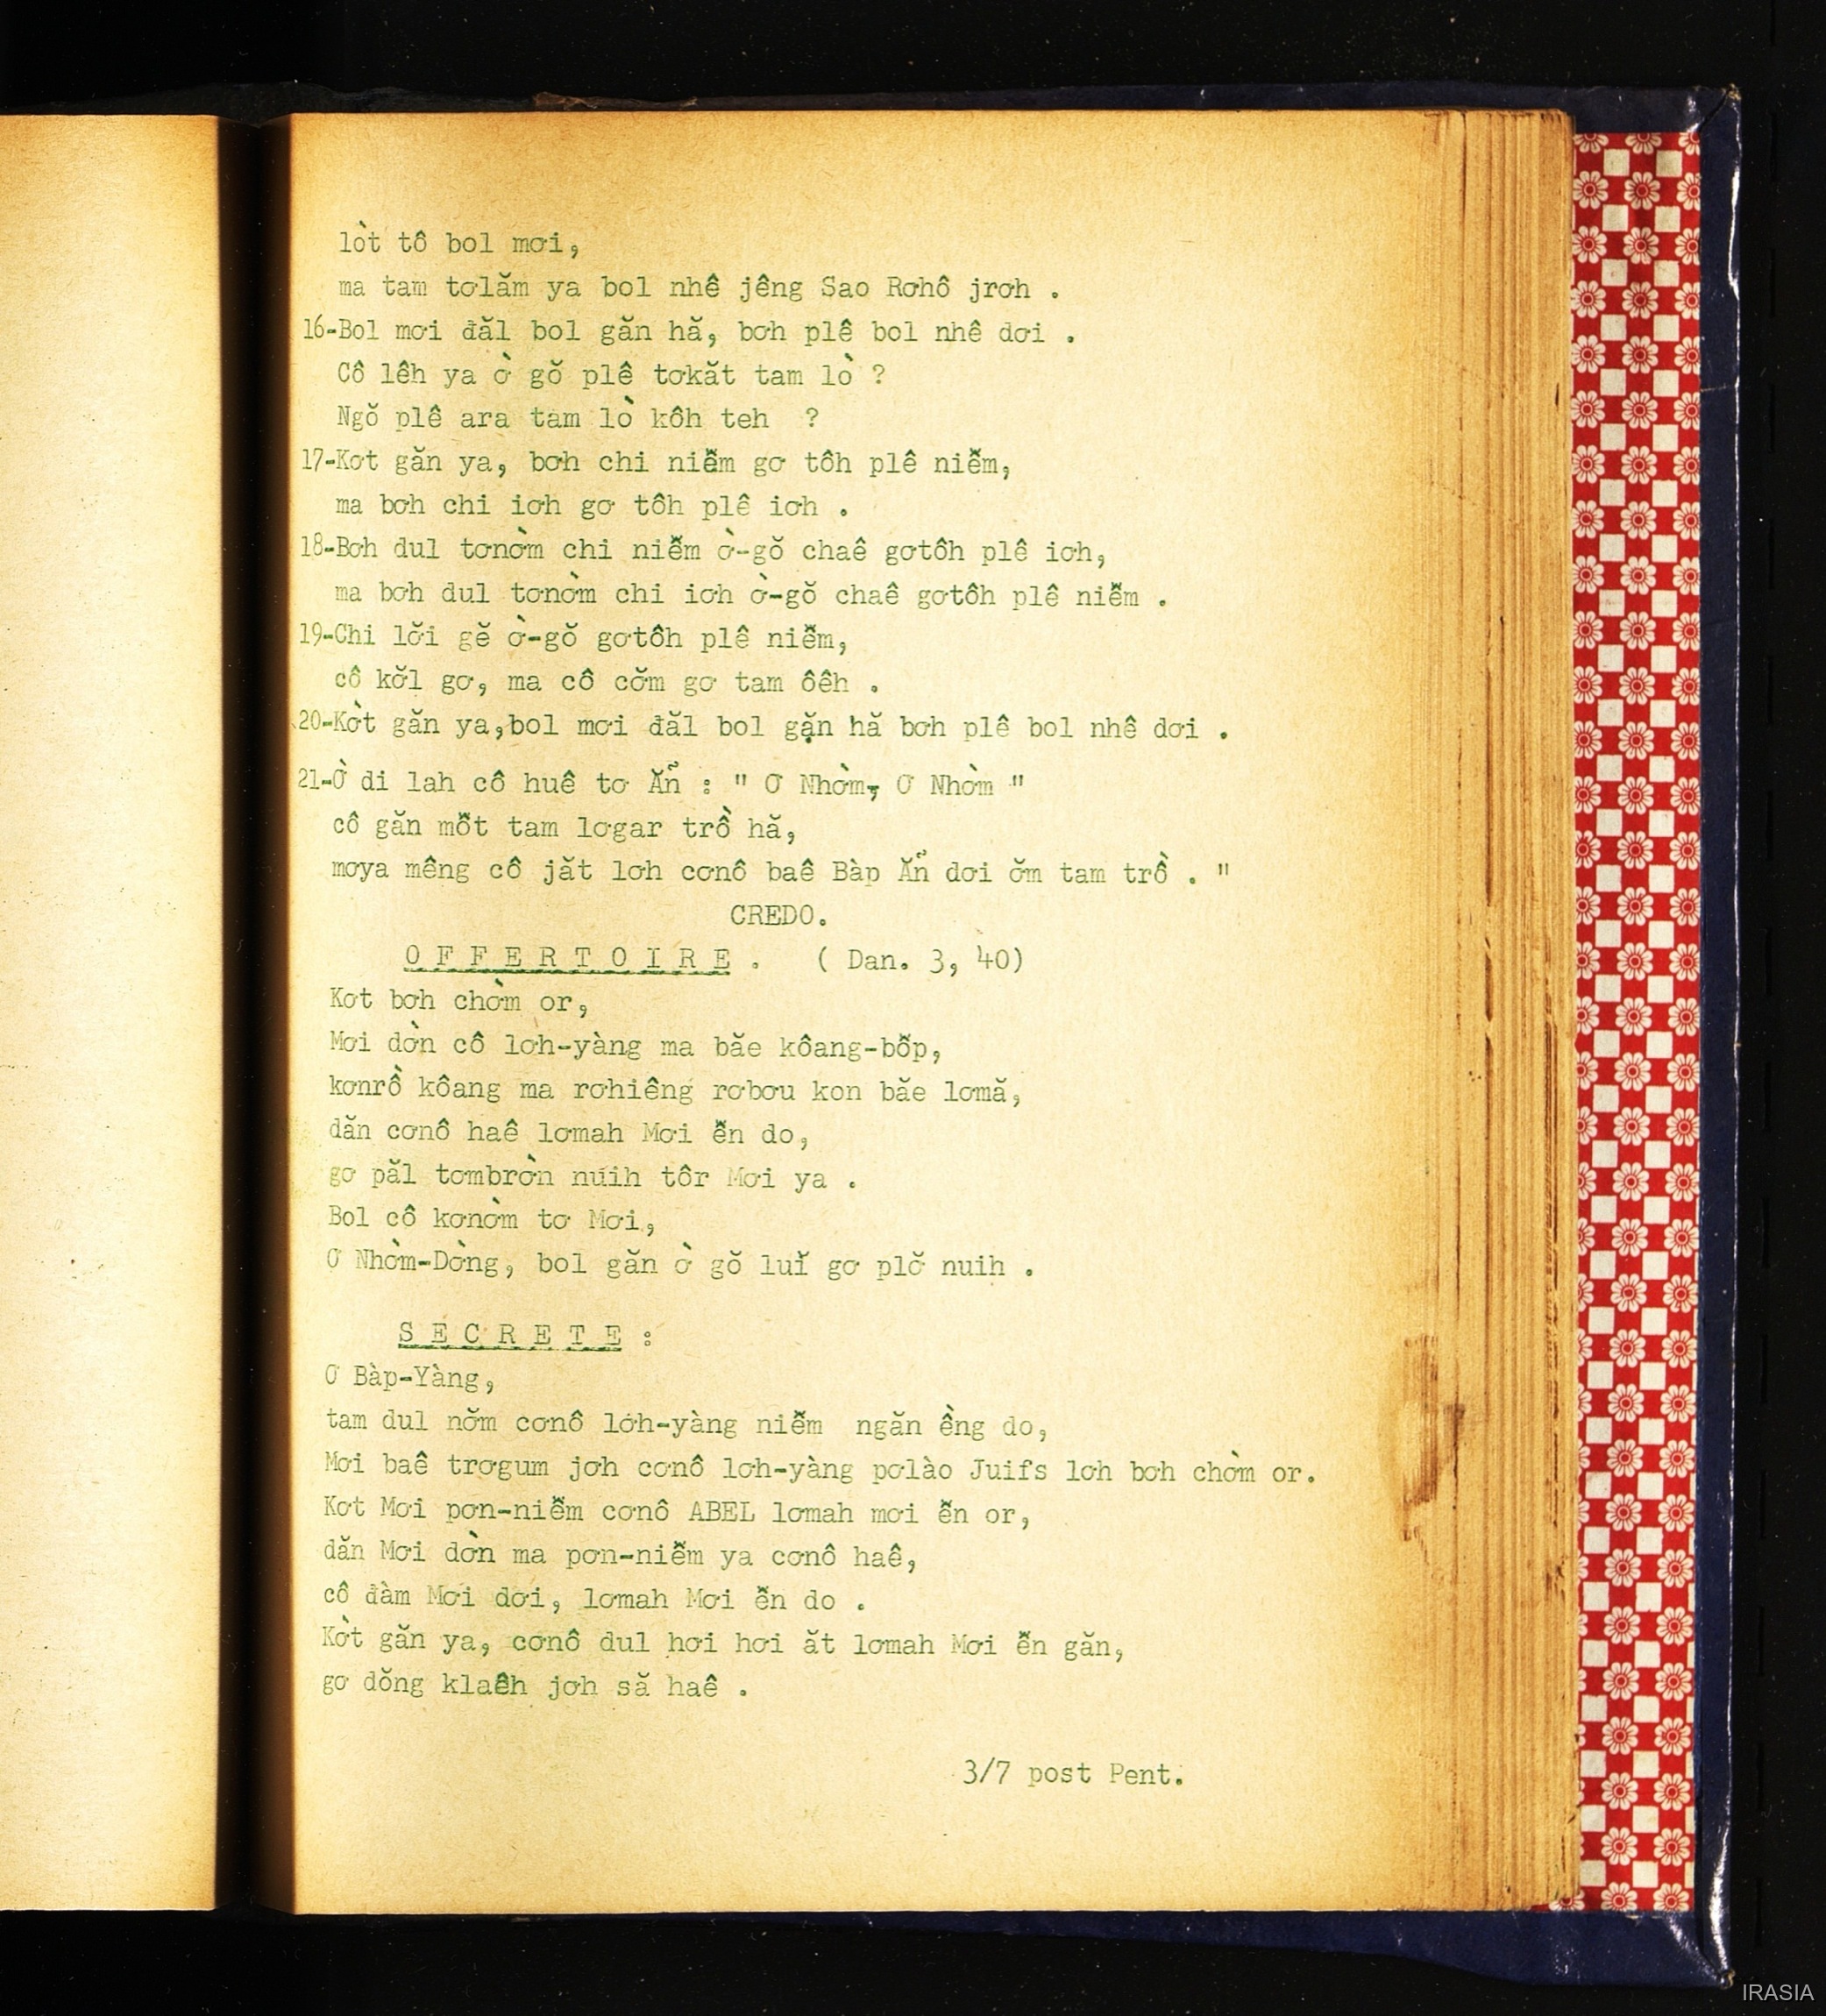 lòt tô bol mơi,
ma tam tơlăm ya bol nhê jêng Sao Rơhô jrơh .
16-Bol mơi đăl bol găn hă, bơh plê bol nhê dơi .
Cô lêh ya ờ gŏ plê tơkăt tam lò ?
Ngŏ plê ara tam lò kôh teh ?
17-Kơt găn ya, bơh chi niễm gơ tôh plê niễm,
ma bơh chi iơh gơ tôh plê iơh .
18-Bơh dul tơnờm chi niễm ờ-gŏ chaê gơtôh plê iơh,
ma bơh dul tơnờm chi iơh ờ-gŏ chaê gơtôh plê niễm .
19-Chi lơ̆i gĕ ờ-gŏ gơtôh plê niễm,
cô kơ̆l gơ, ma cô cơ̆m gơ tam ôêh .
20-Kờt găn ya,bol mơi đăl bol gặn hă bơh plê bol nhê dơi .
21-Ờ di lah cô huê tơ Ăñ : " Ơ Nhờm, Ơ Nhờm "
cô găn mỗt tam lơgar trồ hă,
mơya mêng cô jăt lơh cơnô baê Bàp Ăñ dơi ơ̆m tam trồ . "
CREDO.
OFFERTOIRE . ( Dan. 3, 40)
Kơt bơh chờm or,
Mơi dờn cô lơh-yàng ma băe kôang-bỗp,
kơnrồ kôang ma rơhiêng rơbơu kon băe lơmă,
dăn cơnô haê lơmah Mơi ễn do,
gơ păl tơmbrờn nuih tôr Mơi ya .
Bol cô kơnờm tơ Mơi,
Ơ Nhờm-Dờng, bol găn ờ gŏ luĭ gơ plơ̆ nuih .
SECRETE :
Ơ Bàp-Yàng,
tam dul nơ̆m cơnô lơh-yàng niễm ngăn ềng do,
Mơi baê trơgum jơh cơnô lơh-yàng pơlào Juifs lơh bơh chờm or.
Kơt Mơi pơn-niễm cơnô ABEL lơmah mơi ễn or,
dăn Mơi dờn ma pơn-niễm ya cơnô haê,
cô đàm Mơi dơi, lơmah Mơi ễn do .
Kờt găn ya, cơnô dul hơi hơi ăt lơmah Mơi ễn găn,
gơ dŏng klaêh jơh să haê .
3/7 post Pent.
IRASIA